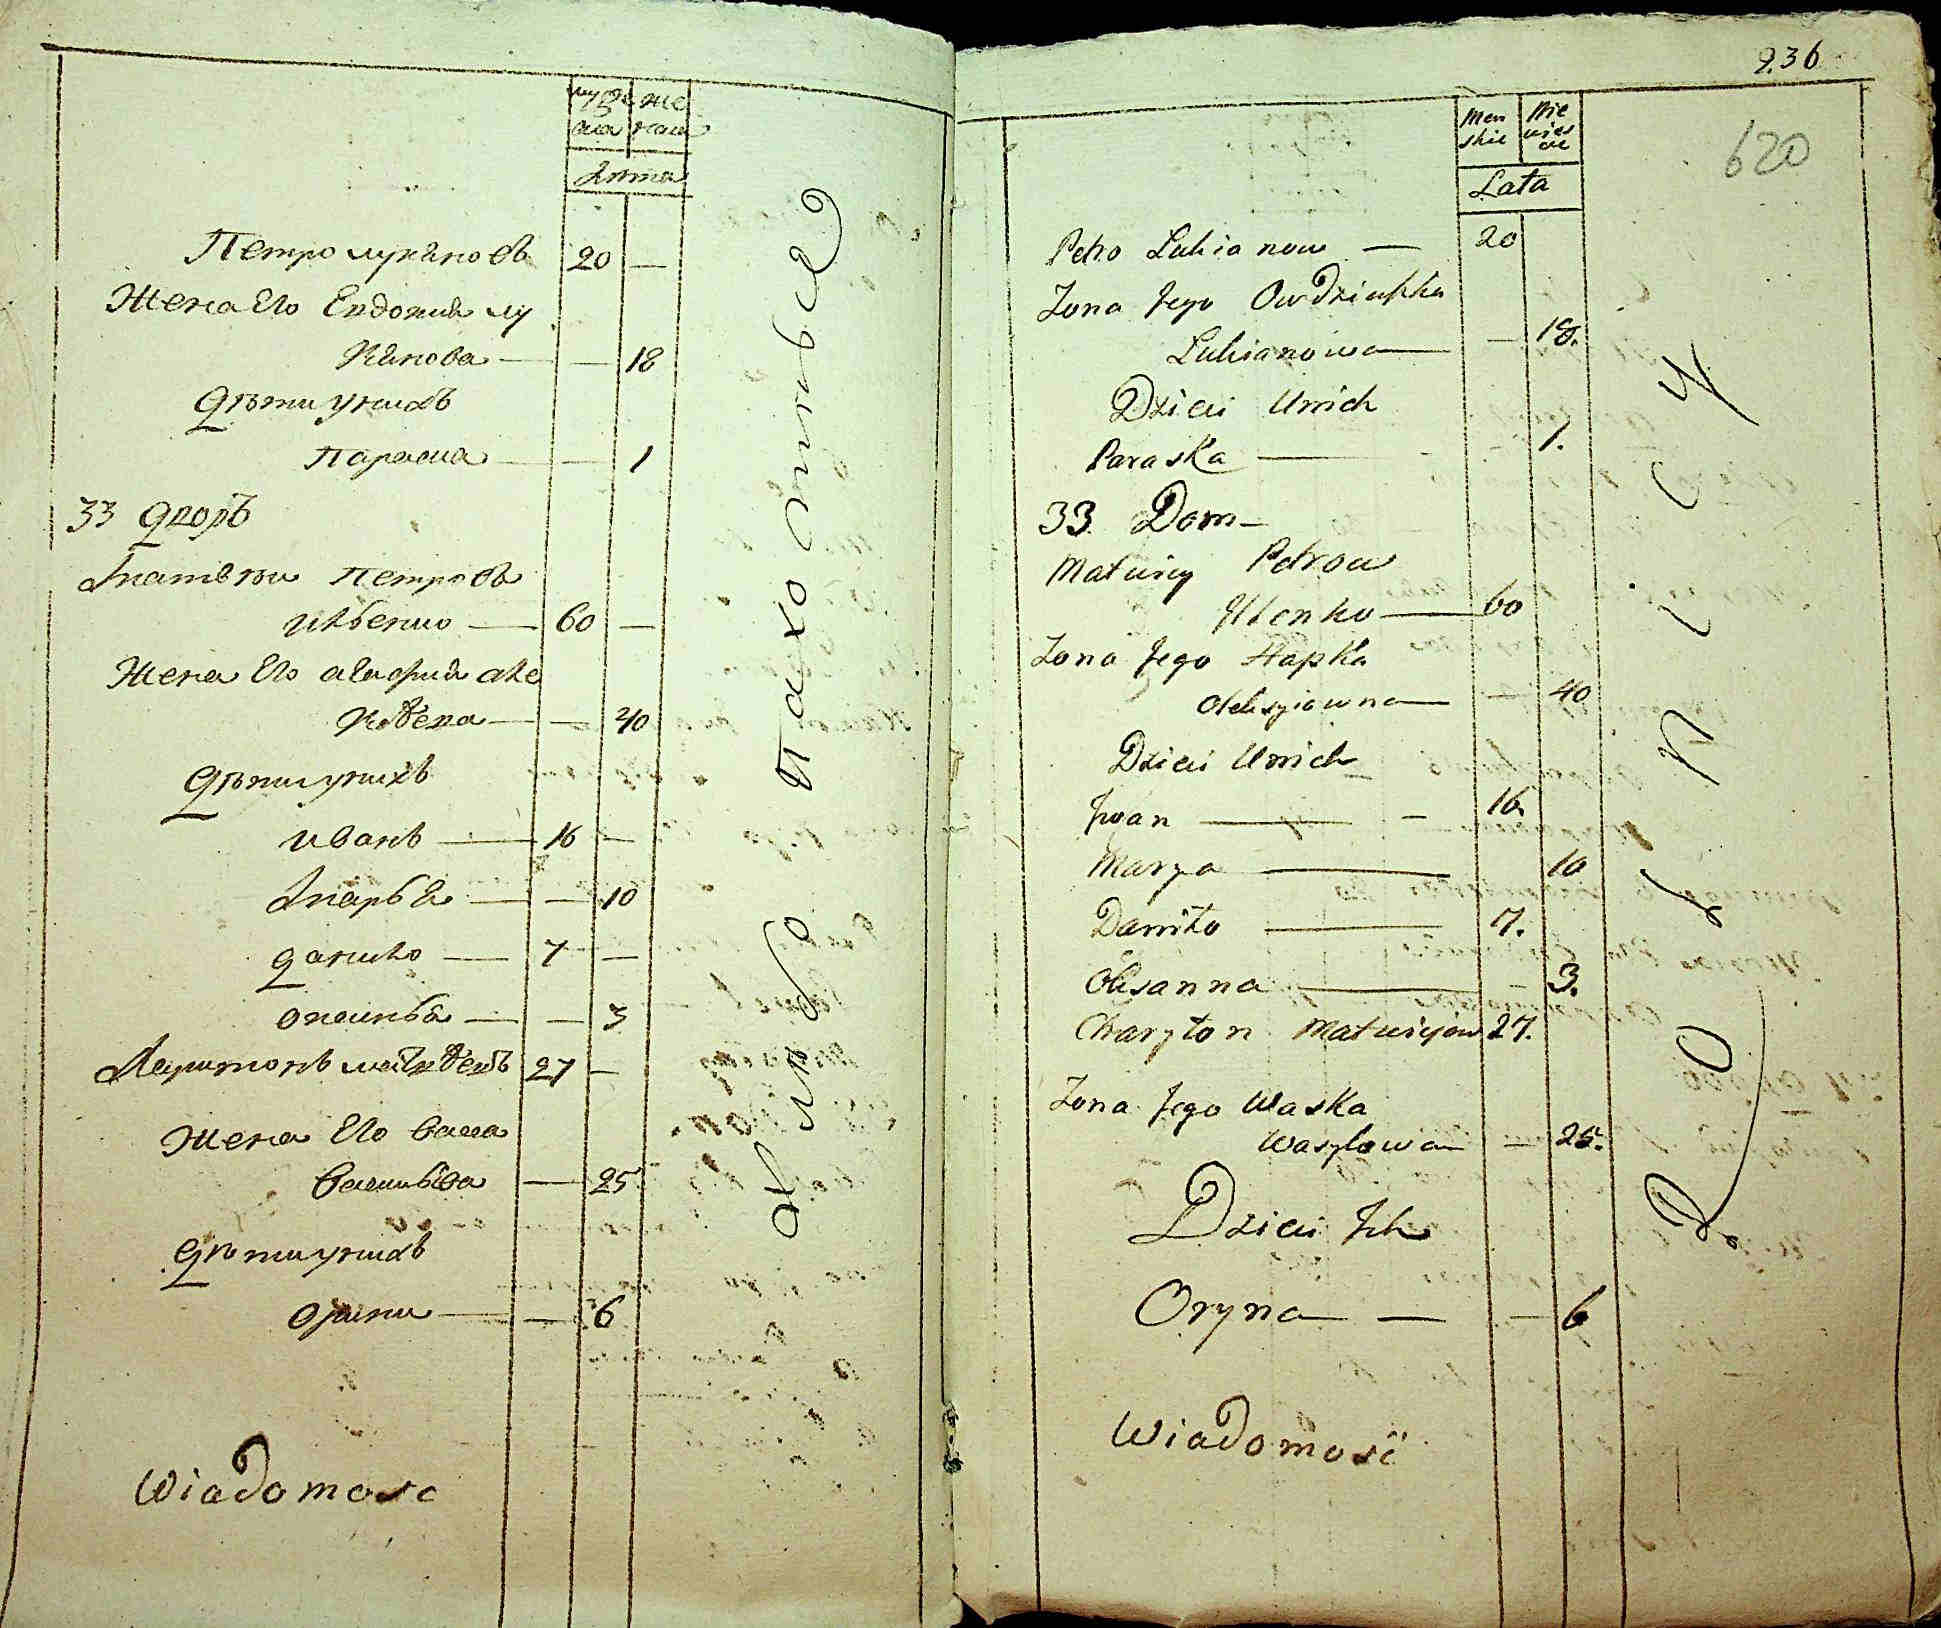 муже же
ска нска
Лѣта
Петро лукяновъ 20 —
Жена Его Евдокия лу
кянова — — 18
Дѣти у нихъ
Параска — — 1
33 Дворъ
Матвѣи Петровъ
илѣенко — 60 —
Жена Его агафия але
ксѣева — — 40
Дѣти у нихъ
иванъ — 16 —
Марья — — 10
Данило — 7 —
Харитонъ матвѣевъ 27 —
Жена Его васка
васильева — — 25
Дѣти у нихъ
Орина — — 6
Wiadomosc
236
620
Men Nie
skie wies
cie
Lata
Petro Lukianow — 20
Zona Jego Owdziuszka
Lukianowa — — 18.
Dzieci Unich
Paraska — 1.
33. Dom —
Matwiey Petrow
Ilenko — 60
Zona Jego Hapka
Oleksyiowna — — 40
Dzieci Unich
Jwan — — 16.
Marya — 10
Daniło — 7.
Oksanna — 3.
Charyton Matwiyow 27.
Zona Jego Waska
Wasylowa — — 25.
Dzieci Jch
Oryna — — 6
Wiadomosć